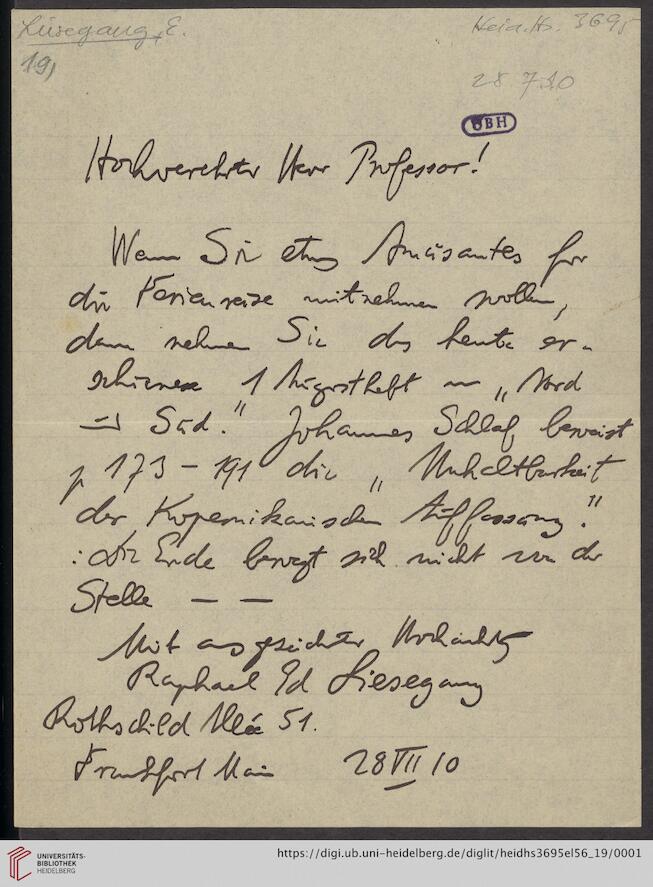 Liesegang, E.
Heid. Hs. 3695
19)
28 7 10
UBH
Hochverehrter Herr Professor!
Wenn Sie etwas Amüsantes für
die Ferienreise mitnehmen wollen,
dann nehmen Sie das heute er-
schienene 1 Augustheft von „Nord
Süd." Johannes Schlaf beweist
p 173 – 191 die „Unhaltbarkeit
der Kopernikanischen Auffassung."
: die Erde bewegt sich nicht von der
Stelle — —
Mit ausgezeichneter Hochachtung
Raphael Ed Liesegang
Rothschild Allée 51.
Frankfurt Main 28 VII 10
UNIVERSITÄTS-
BIBLIOTHEK
HEIDELBERG
https://digi.ub.uni-heidelberg.de/diglit/heidhs3695el56_19/0001